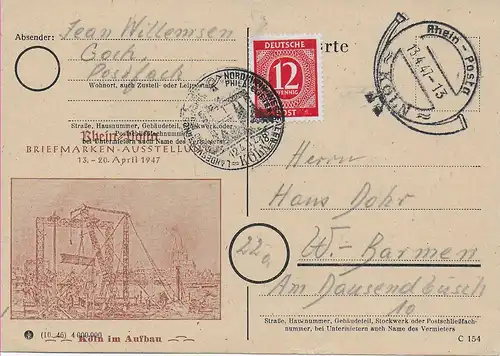 Absender: Jean Willemsen
Goch,
Postfach
Wohnort, auch Zustell- oder Leitpostamt
Straße, Hausnummer, Gebäudeteil, Stockwerk oder
bei Untermietern auch Name des Vermieters
BRIEFMARKEN-AUSSTELLUNG
13. - 20. April 1947
DEUTSCHE
12
PFENNIG
POST
Rhein - Posta
13.4.47.-13
KÖLN
Herrn
Hans Dohr
22a
W.- Barmen
Am Dausendbusch
10
Straße, Hausnummer, Gebäudeteil, Stockwerk oder Postschließfach-
nummer, bei Untermietern auch Name des Vermieters
(10. 46) 4 000.000
Köln im Aufbau
C 154